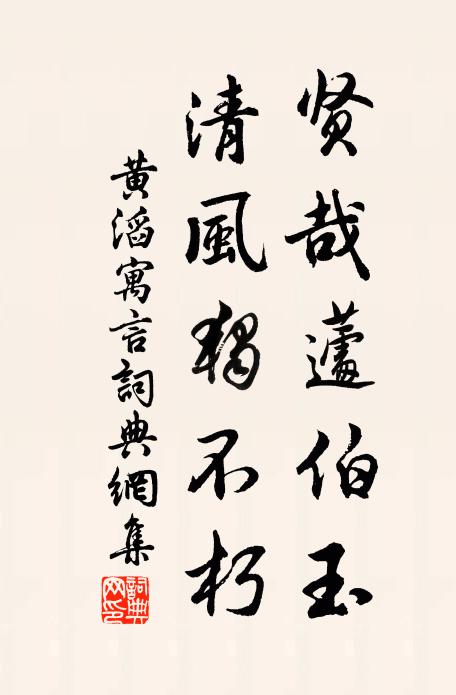 贤哉蘧伯玉
清風獨不朽
黄滔寓言詞典網集
詞典
网印